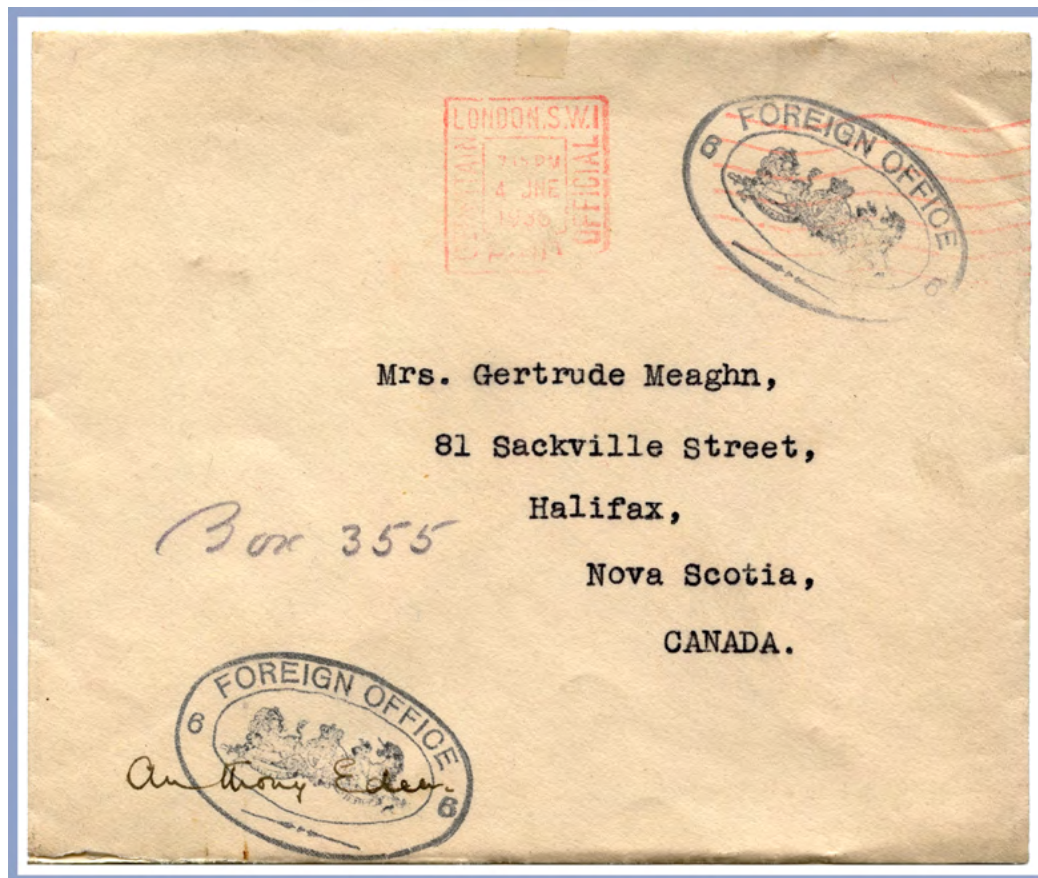 LONDON.S.W.1
OFFICIAL
4 JNE
FOREIGN OFFICE
6 6
Mrs. Gertrude Meaghn,
81 Sackville Street,
Halifax,
Nova Scotia,
CANADA.
Box 355
FOREIGN OFFICE
6 6
Anthony Eden.